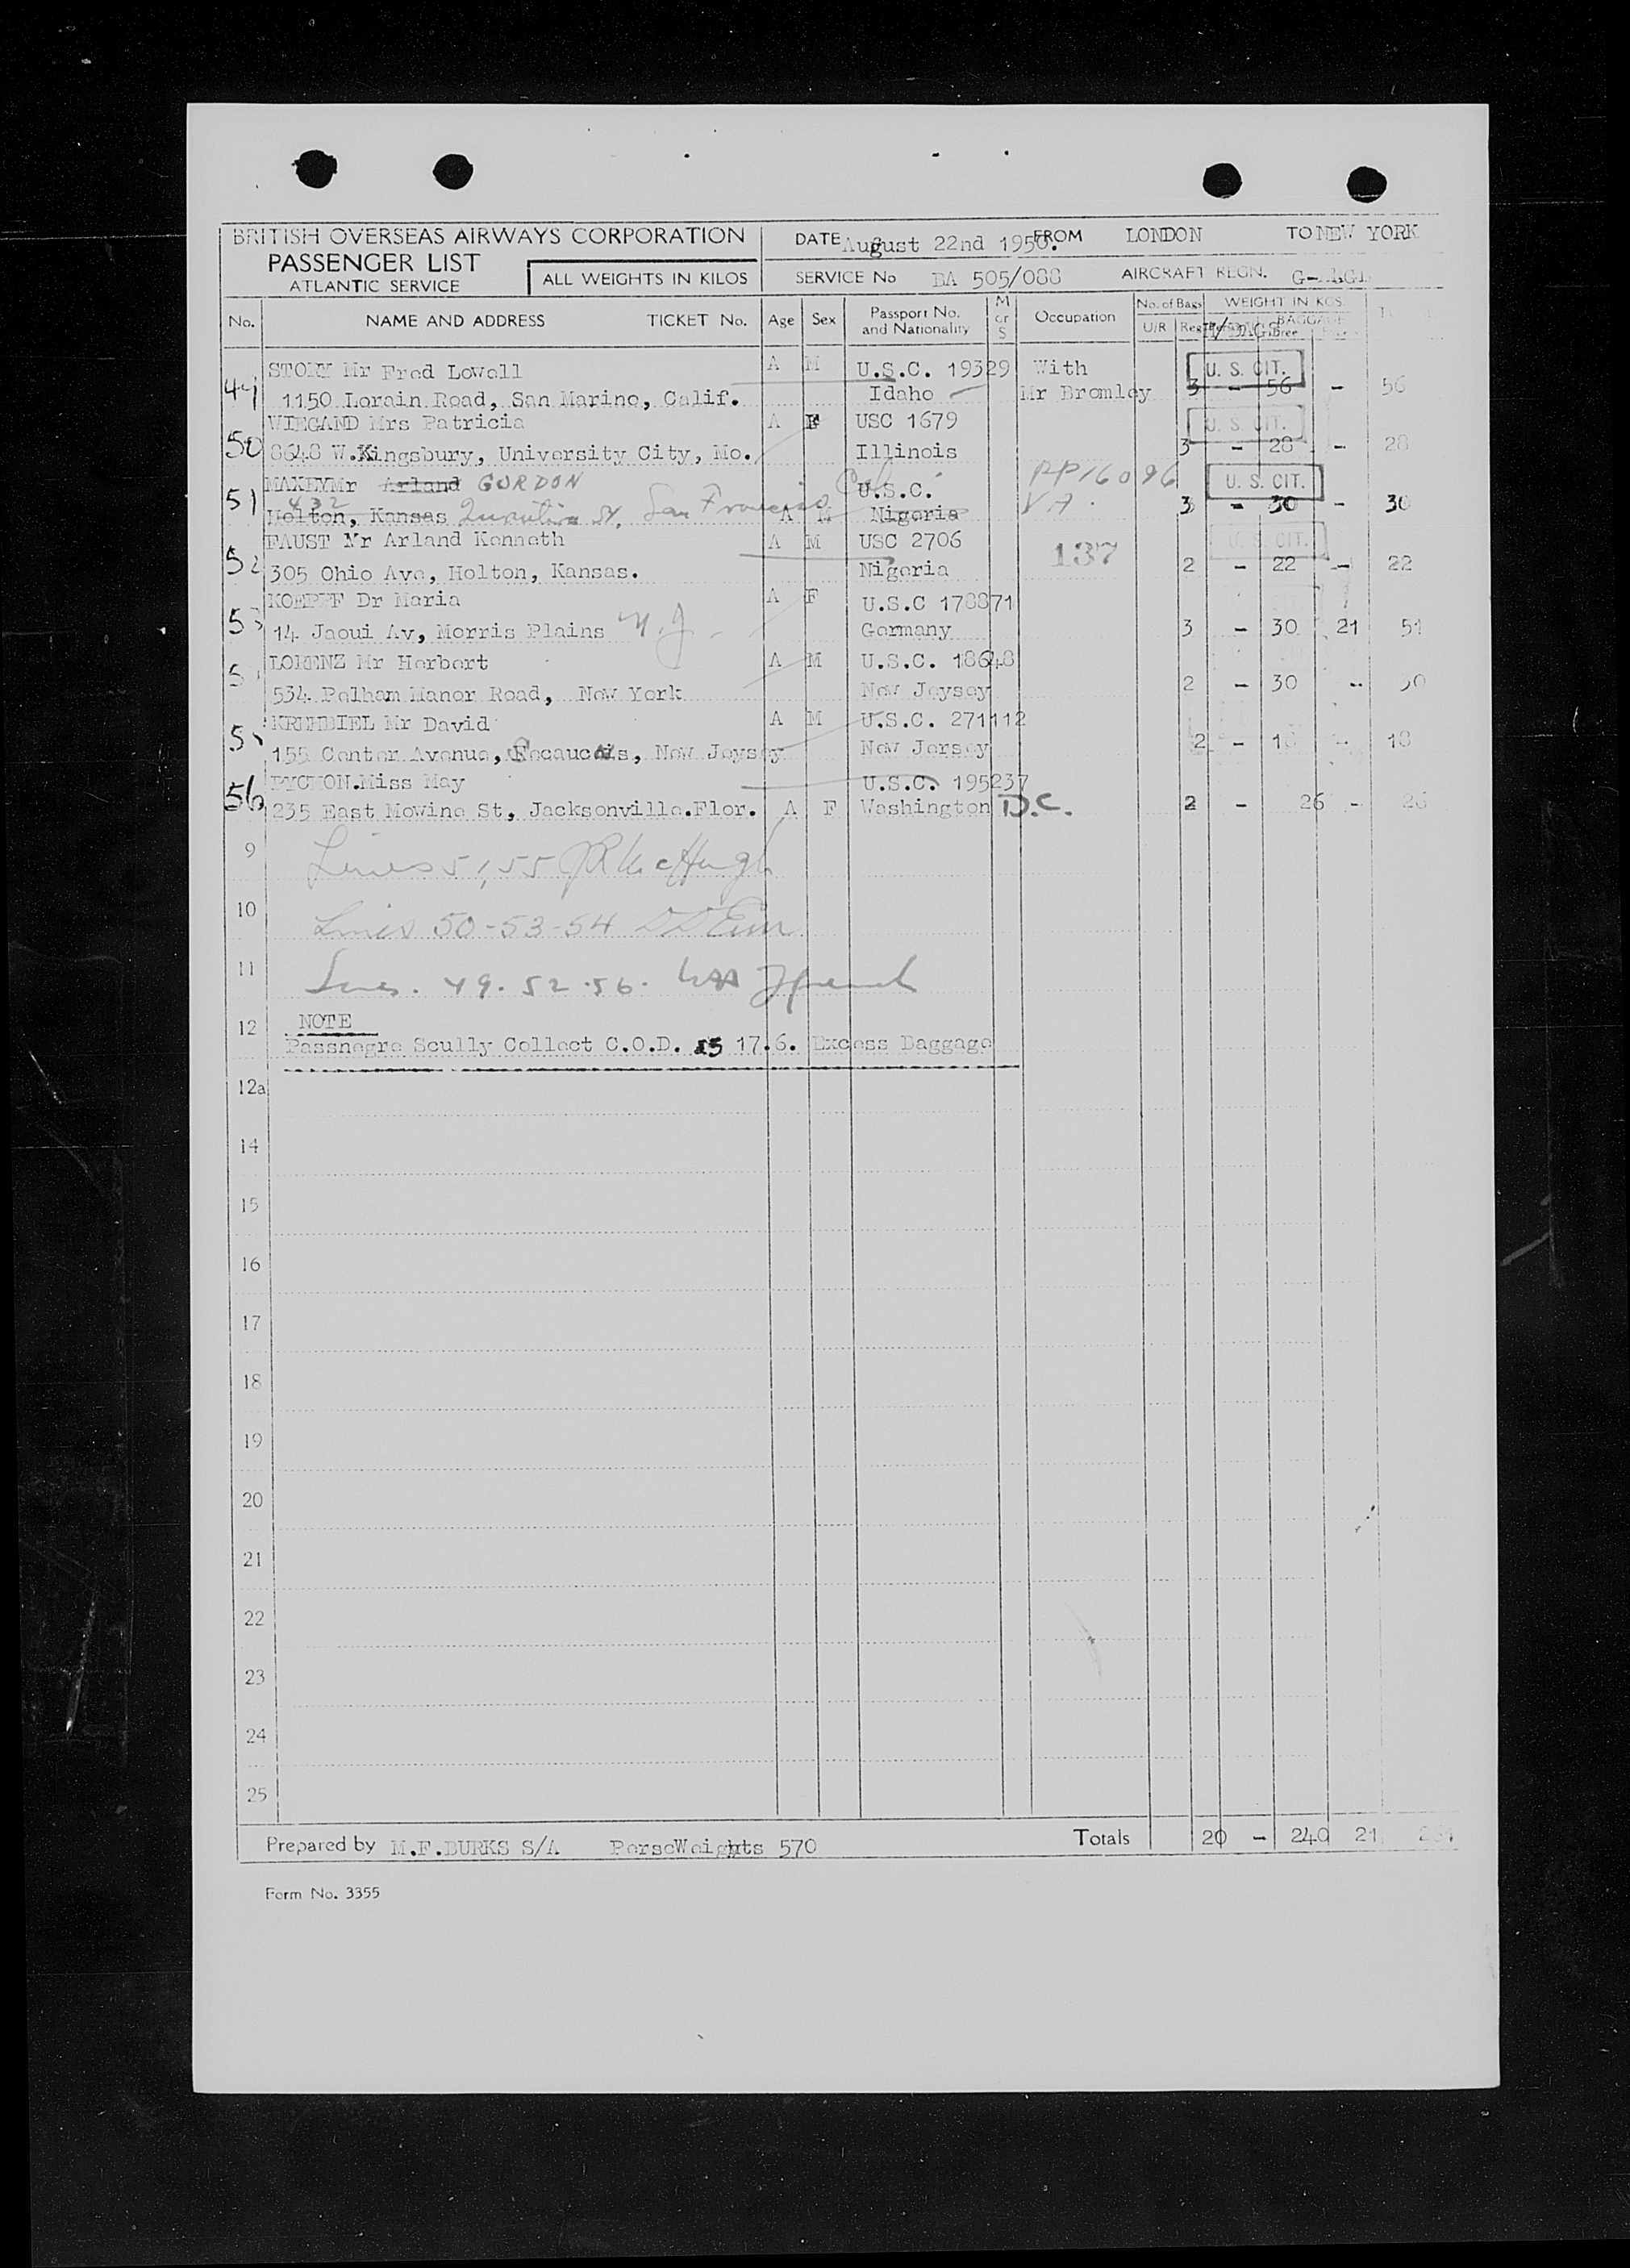 BRITISH OVERSEAS AIRWAYS CORPORATION
PASSENGER LIST
ATLANTIC SERVICE
ALL WEIGHTS IN KILOS
DATE August 22nd 1950. FROM LONDON TO NEW YORK
SERVICE No BA 505/088 AIRCRAFT REGN.
No. NAME AND ADDRESS TICKET No. Age Sex Passport No. and Nationality M or S Occupation No. of Bags U/R WEIGHT IN KGS. BAGGAGE
Mr Fred Lowell A M U.S.C. 19329 With U. S. CIT.
49 1150 Lorain Road, San Marino, Calif. Idaho Mr Bromley 3 - 56 - 56
WIEGAND Mrs Patricia A F USC 1679 U. S. CIT.
50 8648 W.Kingsbury, University City, Mo. Illinois 3 - 28 - 28
MAXEY Mr Arland GORDON U.S.C. PP16096 U. S. CIT.
51 Holton, Kansas 432 St. San Francisco Cal A M Nigeria 3 - 30 - 30
FAUST Mr Arland Kenneth A M USC 2706 137 U. S. CIT.
52 305 Ohio Ave, Holton, Kansas. Nigeria 2 - 22 - 22
KOEPFF Dr Maria A F U.S.C 178871
53 14 Jaoui Av, Morris Plains N.J. Germany 3 - 30 21 51
LORENZ Mr Herbert A M U.S.C. 18648
5 534 Pelham Manor Road, New York New Jeysey 2 - 30 - 30
KREHBIEL Mr David A M U.S.C. 271112
5 155 Center Avenue, New Jeysey New Jersey 2 - 18 - 18
Miss May U.S.C. 195237
56 235 East Mowine St, Jacksonville.Flor. A F Washington D.C. 2 - 26 - 26
9 Lines 51,55 McHugh
10 Lines 50-53-54
11 Lines. 49.52.56.
12 NOTE
Passnegre Scully Collect C.O.D. £5 17.6. Excess Baggage
12a
14
15
16
17
18
19
20
21
22
23
24
25
Prepared by M.F.BURKS S/A PersoWeights 570 Totals 20 - 240 21 261
Form No. 3355